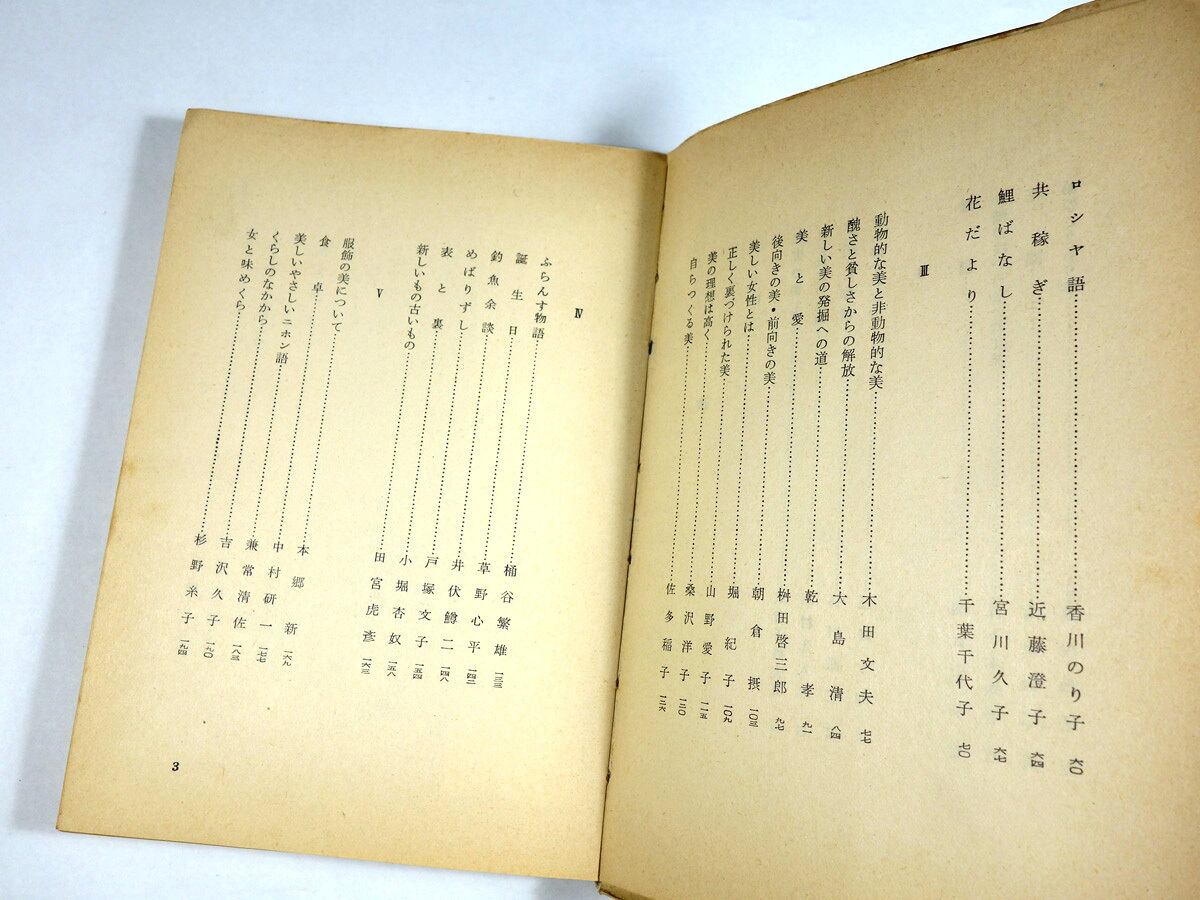 ロシヤ語……香川のり子 六〇
共稼ぎ……近藤澄子 六四
鯉ばなし……宮川久子 六七
花だより……千葉千代子 七〇
Ⅲ
動物的な美と非動物的な美……木田文夫 七七
醜さと貧しさからの解放……大島清 八四
新しい美の発掘への道……乾孝 九一
美と愛……桝田啓三郎 九七
後向きの美・前向きの美……朝倉摂 一〇三
美しい女性とは……堀紀子 一〇九
正しく裏づけられた美……山野愛子 一一五
美の理想は高く……桑沢洋子 一二〇
自らつくる美……佐多稲子 一二六
Ⅳ
ふらんす物語……桶谷繁雄 一三三
誕生日……草野心平 一四二
釣魚余談……井伏鱒二 一四八
めばりずし……戸塚文子 一五四
表と裏……小堀杏奴 一五八
新しいもの古いもの……田宮虎彦 一六三
Ⅴ
服飾の美について……本郷新 一六九
食卓……中村研一 一七七
美しいやさしいニホン語……兼常清佐 一八三
くらしのなかから……吉沢久子 一九〇
女と味めくら……杉野糸子 一九四
3